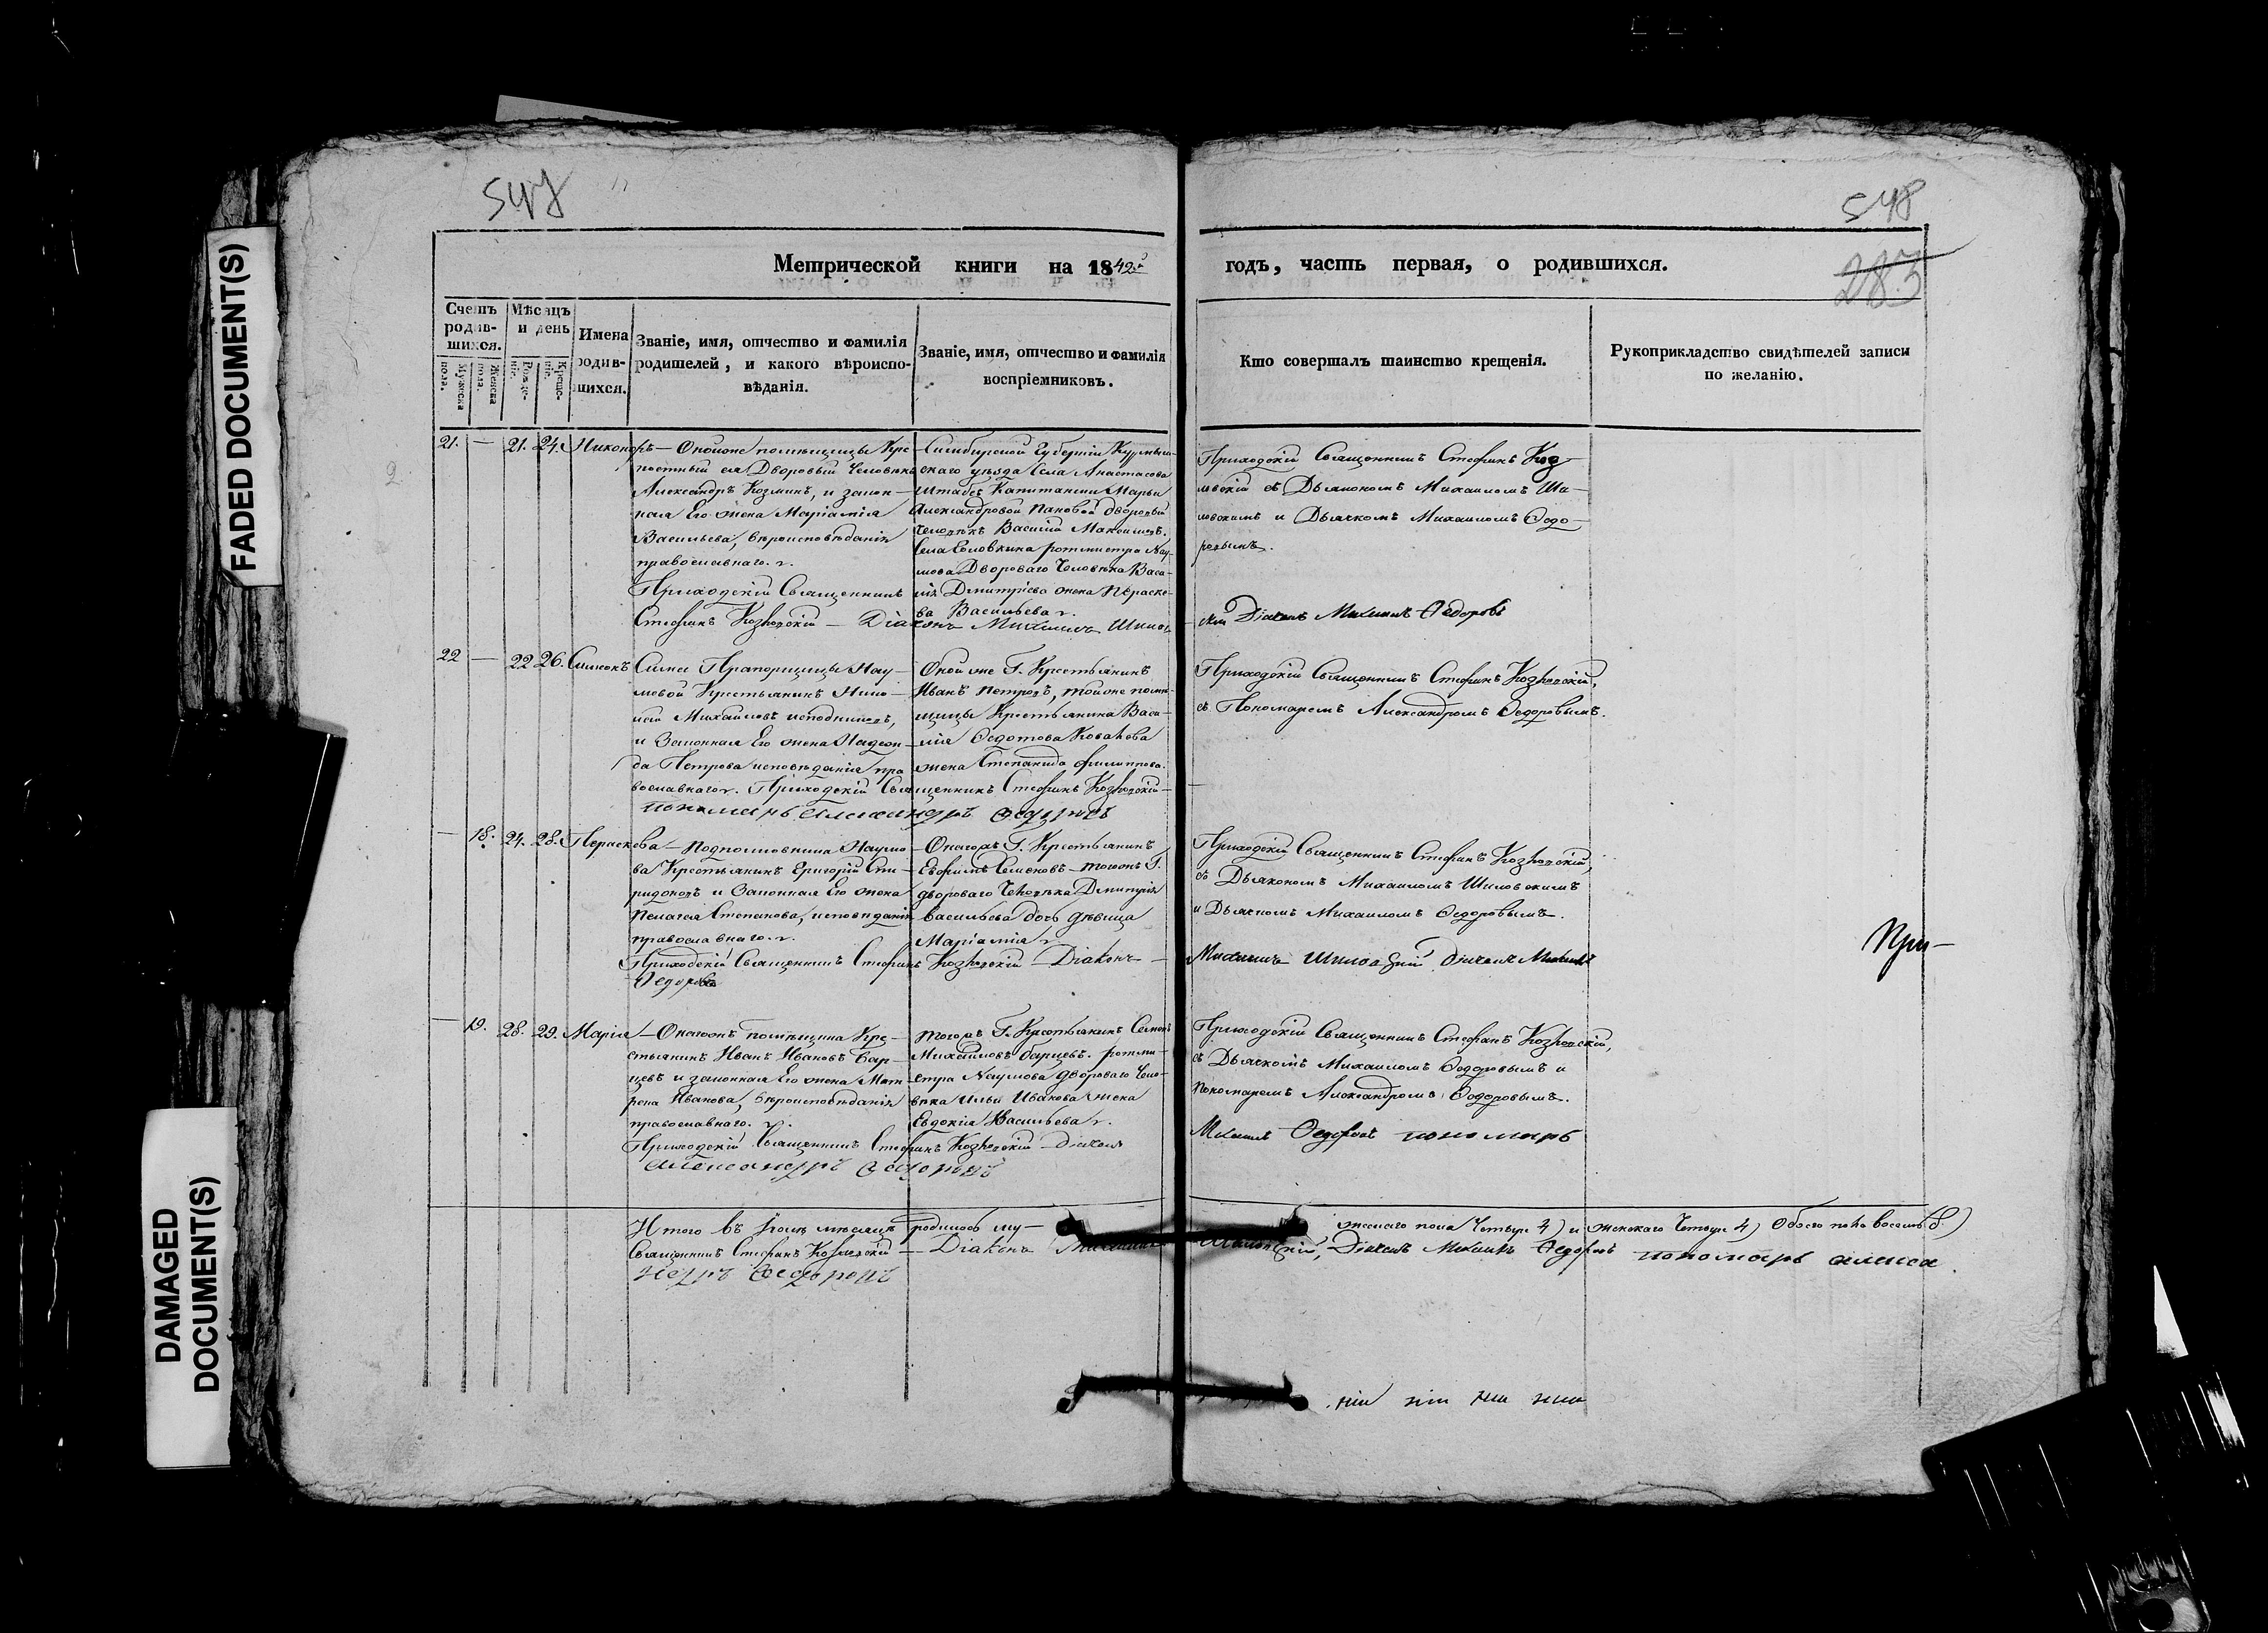 547
548
283
Метрической книги на 1842й
годъ, часть первая, о родившихся.
Счетъ родив-шихся.
Мужеска пола.
Женска пола.
Мѣсяцъ и день
Рожде-нія.
Креще-нія.
Имена родив-шихся.
Званіе, имя, отчество и фамилія
родителей, и какого вѣроиспо-
вѣданія.
Званіе, имя, отчество и фамилія
воспріемниковъ.
Кто совершалъ таинство крещенія.
Рукоприкладство свидѣтелей записи
по желанію.
21. — 21. 24. Никоноръ — Оной же помѣщицы Кре-
постный ея Дворовый Человѣкъ
Александръ Козминъ, и закон-
ная Его жена Маріамія
Васильева, вѣроисповѣданія
православнаго.
Приходскій Священникъ
Стефанъ — Діаконъ Михаилъ
Симбирской Губерніи Курмыш-
скаго уѣзда Села Анастасова
Штабсъ Капитанши Марьи
Александровой Пановой дворовый
Человѣкъ Василій Максимовъ.
Села Головкина ротмистра Нау-
мова Двороваго Человѣка Васи-
лія Дмитріева жена Параске-
ва Васильева
Приходскій Священникъ Стефанъ
съ Дьякономъ Михаиломъ Ши-
ловскимъ и Дьячкомъ Михаиломъ Ѳедо-
ровымъ.
Михаилъ Ѳедоровъ
22 — 22 26. Симеонъ
Прапорщицы Нау-
мовой Крестьянинъ
Михайловъ
и Законная Его жена
Петрова исповѣданія пра
вославнаго. Приходскій Священникъ Стефанъ
пономарь Александръ Ѳедоровъ
Оной же Г. Крестьянинъ
Иванъ Петровъ, той же помѣ-
щицы Крестьянина Васи-
лія Ѳедотова
жена Степанида Филиппова.
Приходскій Священникъ Стефанъ
съ Пономаремъ Александромъ Ѳедоровымъ.
— 18. 24. 28. Параскева — Подполковника Наумо-
ва Крестьянинъ Григорій Спи-
ридоновъ и Законная Его жена
Пелагея Степанова, исповѣданія
православнаго.
Приходскій Священникъ Стефанъ Діаконъ —
Ѳедоровъ
Онагожъ Г. Крестьянинъ
Семеновъ — тогожъ Г.
двороваго Человѣка Дмитрія
Васильева дочь дѣвица
Маріамія
Приходскій Священникъ Стефанъ
съ Дьякономъ Михаиломъ Шиловскимъ
и Дьячкомъ Михаиломъ Ѳедоровымъ.
Михаилъ Шиловскій
При—
— 19. 28. 29. Марія — Онагожъ помѣщика Кре-
стьянинъ Иванъ Ивановъ Бар-
цевъ и законная Его жена Мат-
рена Иванова, вѣроисповѣданія
православнаго.
Приходскій Священникъ Стефанъ
Александръ Ѳедоровъ
тогожъ Г. Крестьянинъ Семенъ
Михайловъ Барцевъ. ротми-
стра Наумова двороваго Чело-
вѣка Ильи Иванова жена
Евдокія Васильева
Приходскій Священникъ Стефанъ
съ Дьячкомъ Михаиломъ Ѳедоровымъ и
Пономаремъ Александромъ Ѳедоровымъ.
Михаилъ Ѳедоровъ пономарь
Итого въ мѣсяцѣ родилось му-
жескаго пола Четыре 4) и женскаго Четыре 4) Обоего пола восемь (8)
Священникъ Стефанъ — Діаконъ Михаилъ
Михаилъ Ѳедоровъ пономарь Алекса
ндръ Ѳедоровъ
FADED DOCUMENT(S)
DAMAGED DOCUMENT(S)